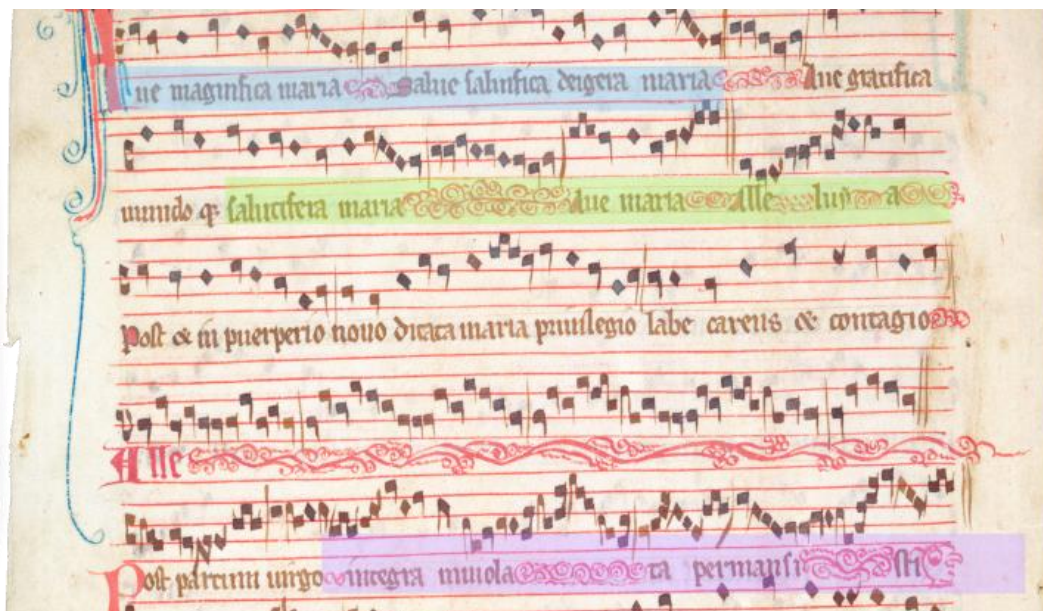 Aue magnifica maria Salue salutifica deigera maria Aue gratifica
mundo q salutifera maria Aue maria Alle luy a
Post & in puerperio nouo ditata maria priuilegio labe carens & contagio
Alle
Post partum uirgo integra inuiola ta permansi sti